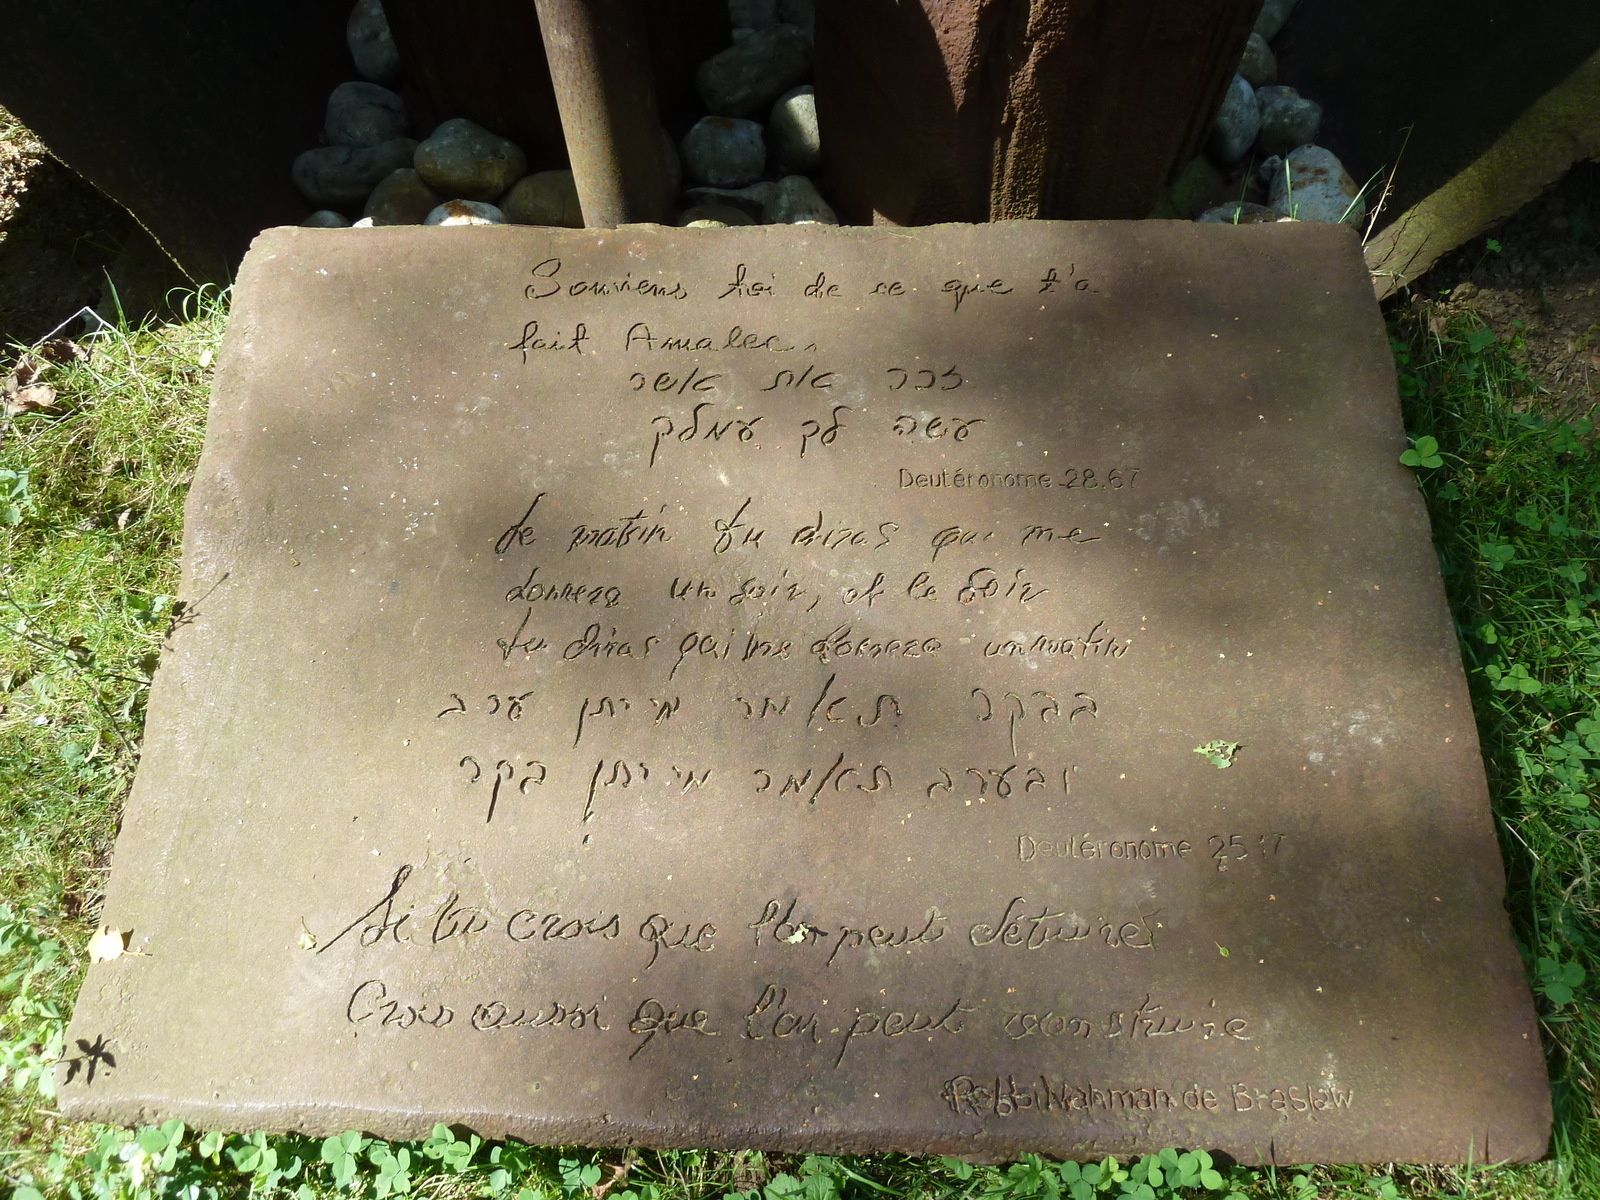 Souviens toi de ce que t'a
fait Amalec.
זכר את אשר
עשה לך עמלק
Deutéronome 28.67
Le matin tu diras qui me
donnera un soir, et le soir
tu diras qui me donnera un matin
בבקר תאמר מי יתן ערב
ובערב תאמר מי יתן בקר
Deutéronome 25 17
Si tu crois que l'on peut détruire
Crois aussi que l'on peut construire
Rabbi Nahman de Braslaw